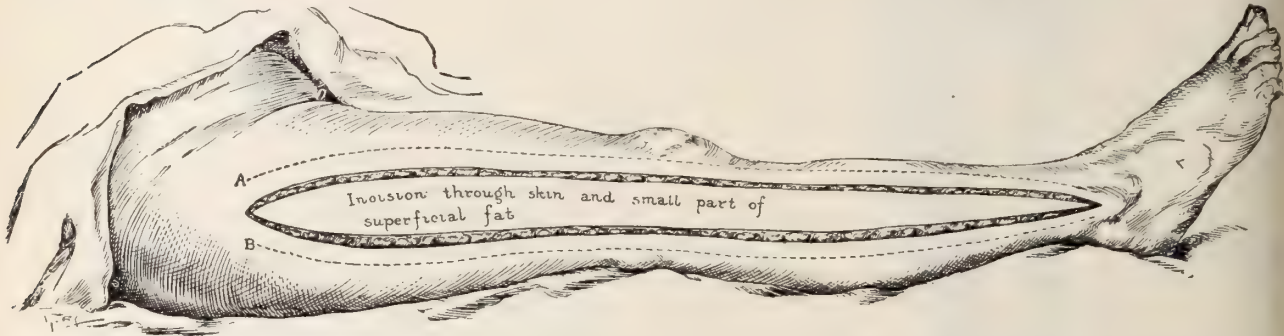 A
Incision through skin and small part of
superficial fat
B